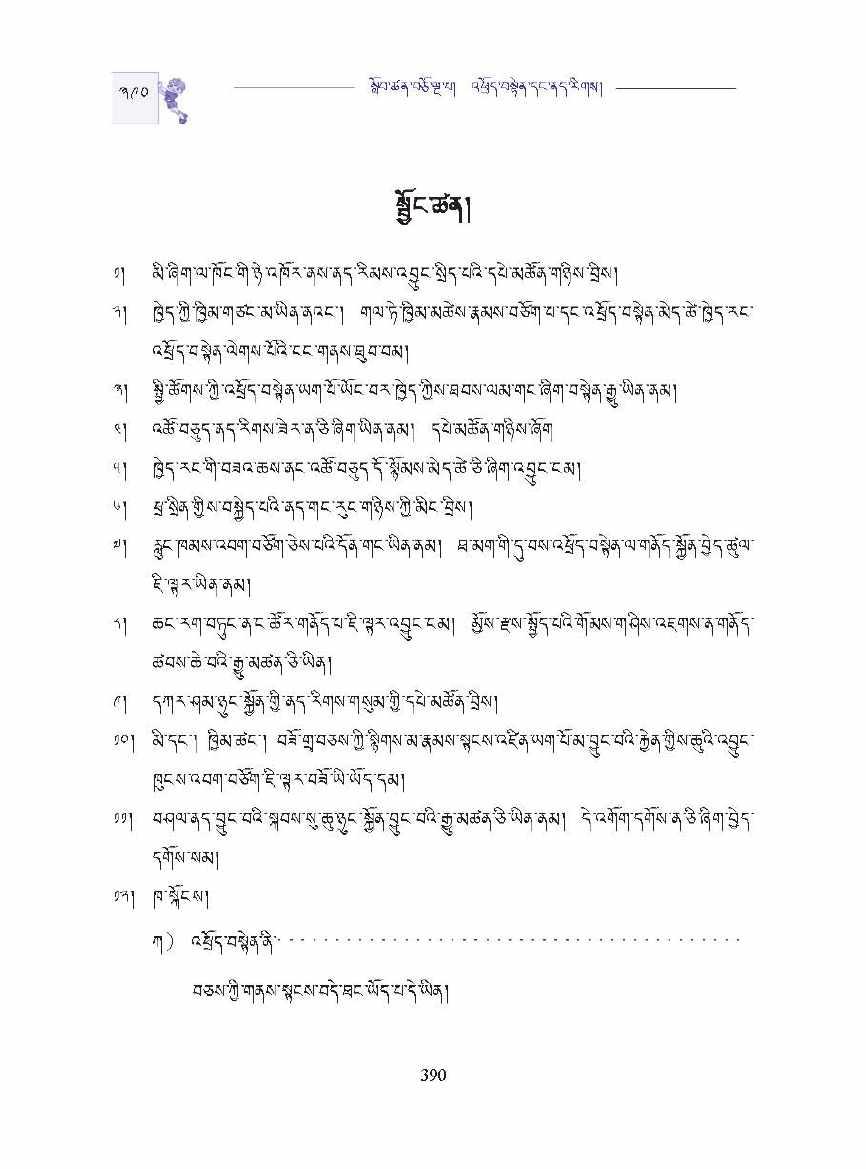 ༣༩༠
སློབ་ཚན་བཅོ་ལྔ་པ། འཕྲོད་བསྟེན་དང་ནད་རིགས།
སྦྱོང་ཚན།
༡། མི་ཞིག་ལ་ཁོང་གི་ཉེ་འཁོར་ནས་ནད་རིམས་འབྱུང་སྲིད་པའི་དཔེ་མཚོན་གཉིས་བྲིས།
༢། ཁྱེད་ཀྱི་ཁྱིམ་གཙང་མ་ཡིན་ནའང་། གལ་ཏེ་ཁྱིམ་མཚེས་རྣམས་བཙོག་པ་དང་འཕྲོད་བསྟེན་མེད་ཚེ་ཁྱེད་རང་
འཕྲོད་བསྟེན་ལེགས་པོའི་ངང་གནས་ཐུབ་བམ།
༣། སྤྱི་ཚོགས་ཀྱི་འཕྲོད་བསྟེན་ཡག་པོ་ཡོང་བར་ཁྱེད་ཀྱིས་ཐབས་ལམ་གང་ཞིག་བསྟེན་རྒྱུ་ཡིན་ནམ།
༤། འཚོ་བཅུད་ནད་རིགས་ཟེར་ན་ཅི་ཞིག་ཡིན་ནམ། དཔེ་མཚོན་གཉིས་ཞོག
༥། ཁྱེད་རང་གི་བཟའ་ཆས་ནང་འཚོ་བཅུད་དོ་སྙོམས་མེད་ཚེ་ཅི་ཞིག་འབྱུང་ངམ།
༦། ཕྲ་སྲིན་གྱིས་བསྐྱེད་པའི་ནད་གང་རུང་གཉིས་ཀྱི་མིང་བྲིས།
༧། རླུང་ཁམས་འབག་བཙོག་ཅེས་པའི་དོན་གང་ཡིན་ནམ། ཐ་མག་གི་དུ་བས་འཕྲོད་བསྟེན་ལ་གནོད་སྐྱོན་བྱེད་ཚུལ་
ཇི་ལྟར་ཡིན་ནམ།
༨། ཆང་རག་བཏུང་ན་ང་ཚོར་གནོད་པ་ཇི་ལྟར་འབྱུང་ངམ། མྱོས་རྫས་སྤྱོད་པའི་གོམས་གཤིས་འཇགས་ན་གནོད་
ཚབས་ཆེ་བའི་རྒྱུ་མཚན་ཅི་ཡིན།
༩། དཀར་ཤམ་ཉུང་སྐྱོན་གྱི་ནད་རིགས་གསུམ་གྱི་དཔེ་མཚོན་བྲིས།
༡༠། མི་དང་། ཁྱིམ་ཚང་། བཟོ་གྲྭ་བཅས་ཀྱི་སྙིགས་མ་རྣམས་སྟངས་འཛིན་ཡག་པོ་མ་བྱུང་བའི་རྐྱེན་གྱིས་ཆུའི་འབྱུང་
ཁུངས་འབག་བཙོག་ཇི་ལྟར་བཟོ་ཡི་ཡོད་དམ།
༡༡། བཤལ་ནད་བྱུང་བའི་སྐབས་སུ་ཆུ་ཉུང་སྐྱོན་བྱུང་བའི་རྒྱུ་མཚན་ཅི་ཡིན་ནམ། དེ་འགོག་དགོས་ན་ཅི་ཞིག་བྱེད་
དགོས་སམ།
༡༢། ཁ་སྐོངས།
ཀ) འཕྲོད་བསྟེན་ནི་ . . . . . . . . . . . . . . . . . . . . . . . . . . . . . . . . . . . . . .
བཅས་ཀྱི་གནས་སྟངས་བདེ་ཐང་ཡོད་པ་དེ་ཡིན།
390